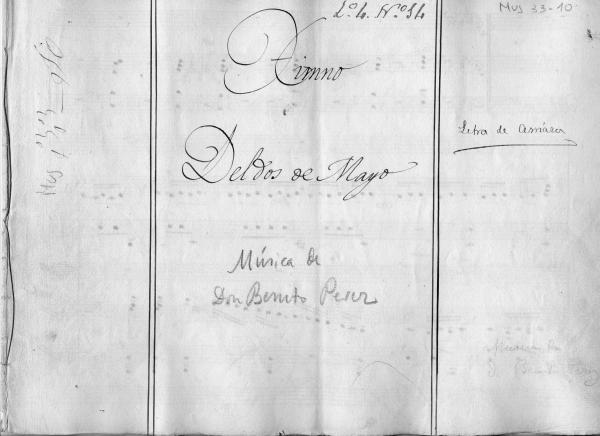 Lº 4. Nº 34
Mus 33-10
Himno
Del dos de Mayo
Letra de Arriaza
Música de
Don Benito Perez
Musica de
D. Benito Perez